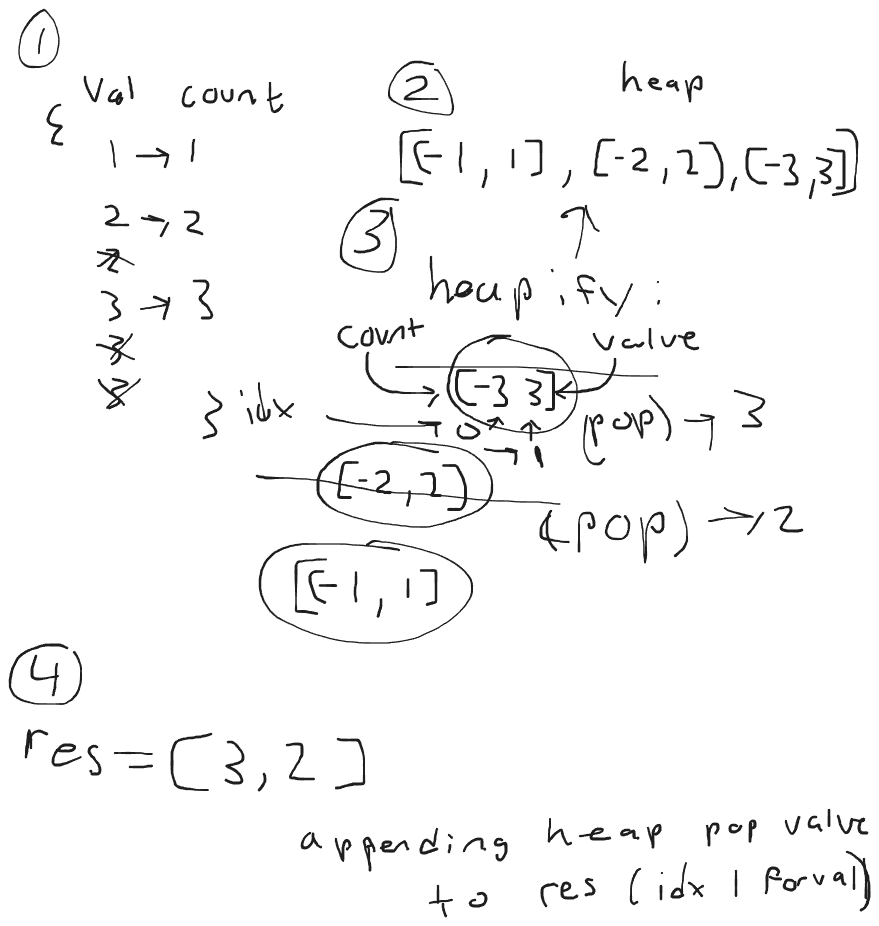 1
Val count
{
1 → 1
2 → 2
2
3 → 3
3
3
} idx
2 heap
[[-1, 1], [-2, 2], [-3, 3]]
3
heapify:
count value
[-3 3] (pop) → 3
→ 0 → 1
[-2, 2] (pop) → 2
[-1, 1]
4
res = [3, 2]
appending heap pop value
to res (idx 1 for val)